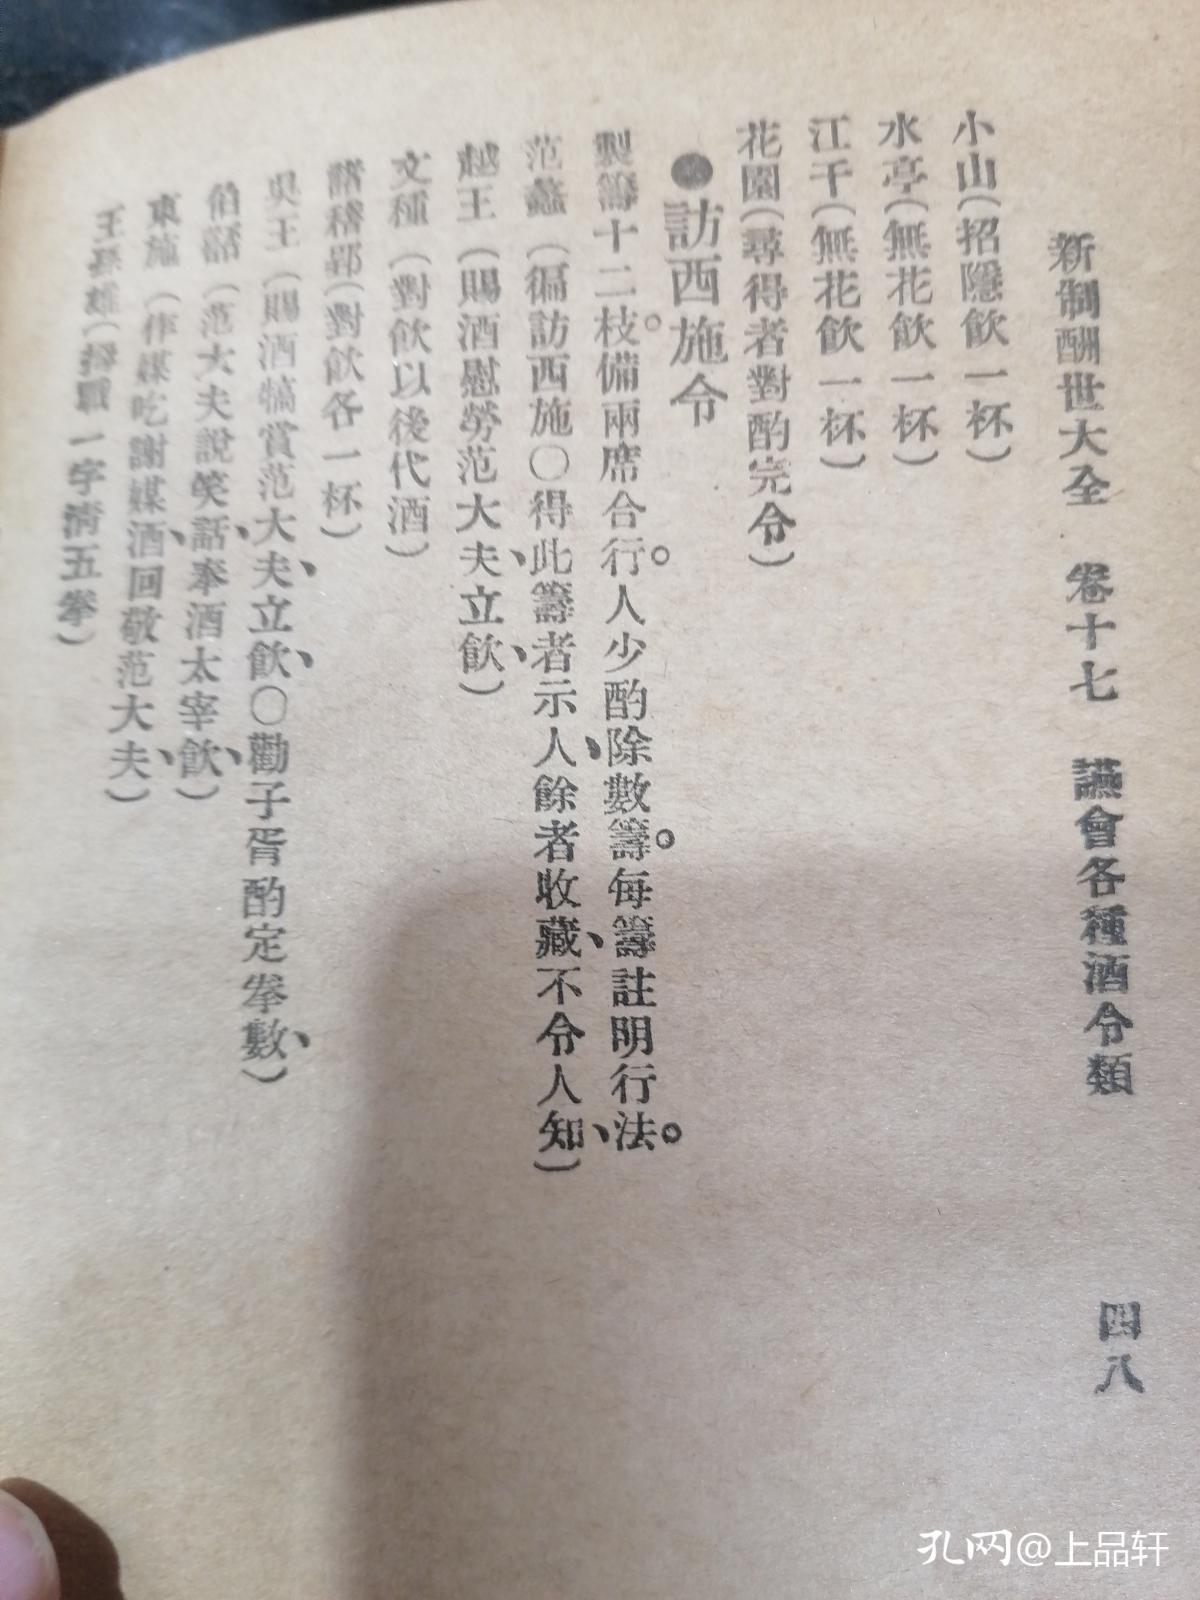 新制酬世大全 卷十七 讌會各種酒令類 四八
小山(招隱飲一杯)
水亭(無花飲一杯)
江干(無花飲一杯)
花園(尋得者對酌完令)
●訪西施令
製籌十二枝。備兩席合行。人少酌除數籌。每籌註明行法。
范蠡(徧訪西施○得此籌者示人、餘者收藏、不令人知、)
越王(賜酒慰勞范大夫、立飲、)
文種(對飲以後代酒)
諸稽郢(對飲各一杯)
吳王(賜酒犒賞范大夫、立飲、○勸子胥酌定拳數、)
伯嚭(范大夫說笑話、奉酒太宰飲、)
東施(作媒吃謝媒酒、回敬范大夫、)
王孫雄(搦戰一字清五拳)
孔网@上品轩